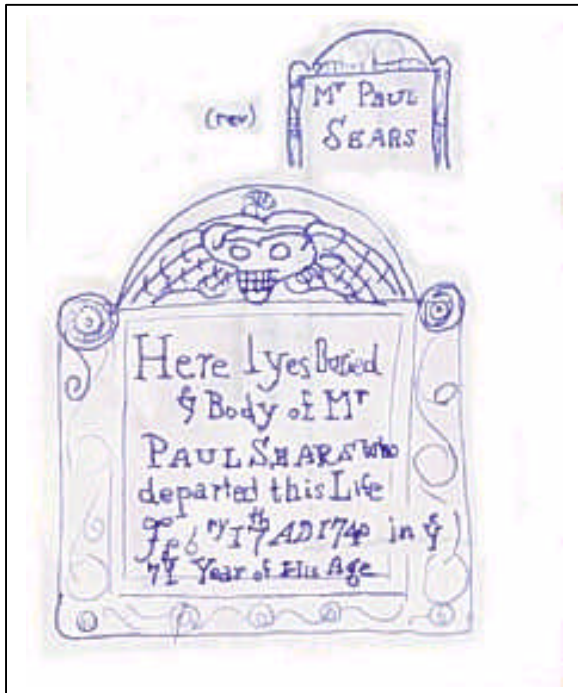 Mr PAUL
(rev)
SEARS
Here lyes Buried
ye Body of Mr
PAUL SEARS who
departed this Life
Febry 17th AD 1740 in ye
71 Year of His Age